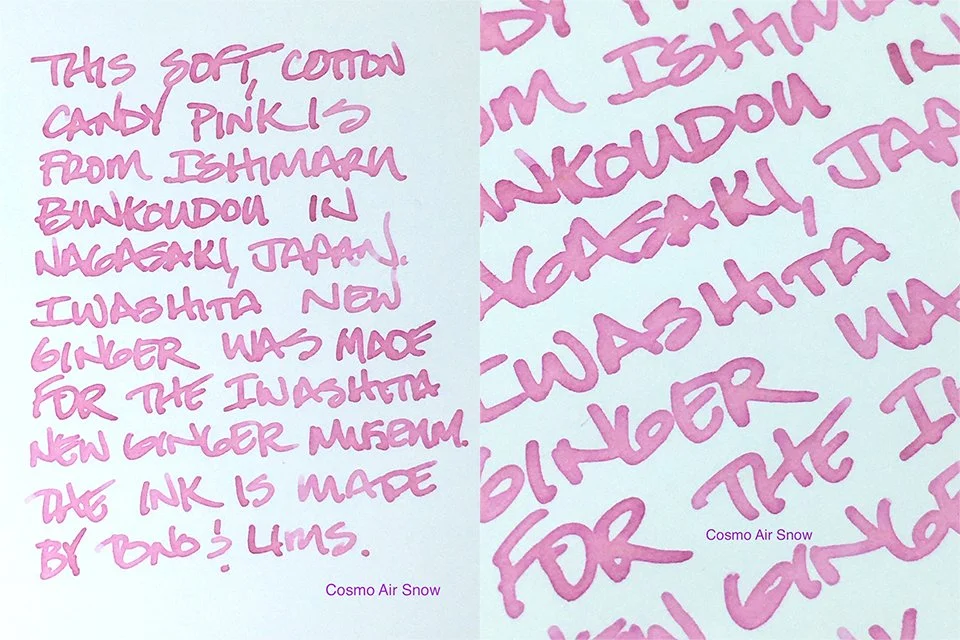 THIS SOFT, COTTON
CANDY PINK IS
FROM ISHIMARU
BUNKOUDOU IN
NAGASAKI, JAPAN.
IWASHITA NEW
GINGER WAS MADE
FOR THE IWASHITA
NEW GINGER MUSEUM.
THE INK IS MADE
BY
Cosmo Air Snow
OM ISHIM
UNKOUDOU IN
AGASAKI, JAPA
IWASHITA
GINGER WA
FOR THE IW
EW GINGE
Cosmo Air Snow